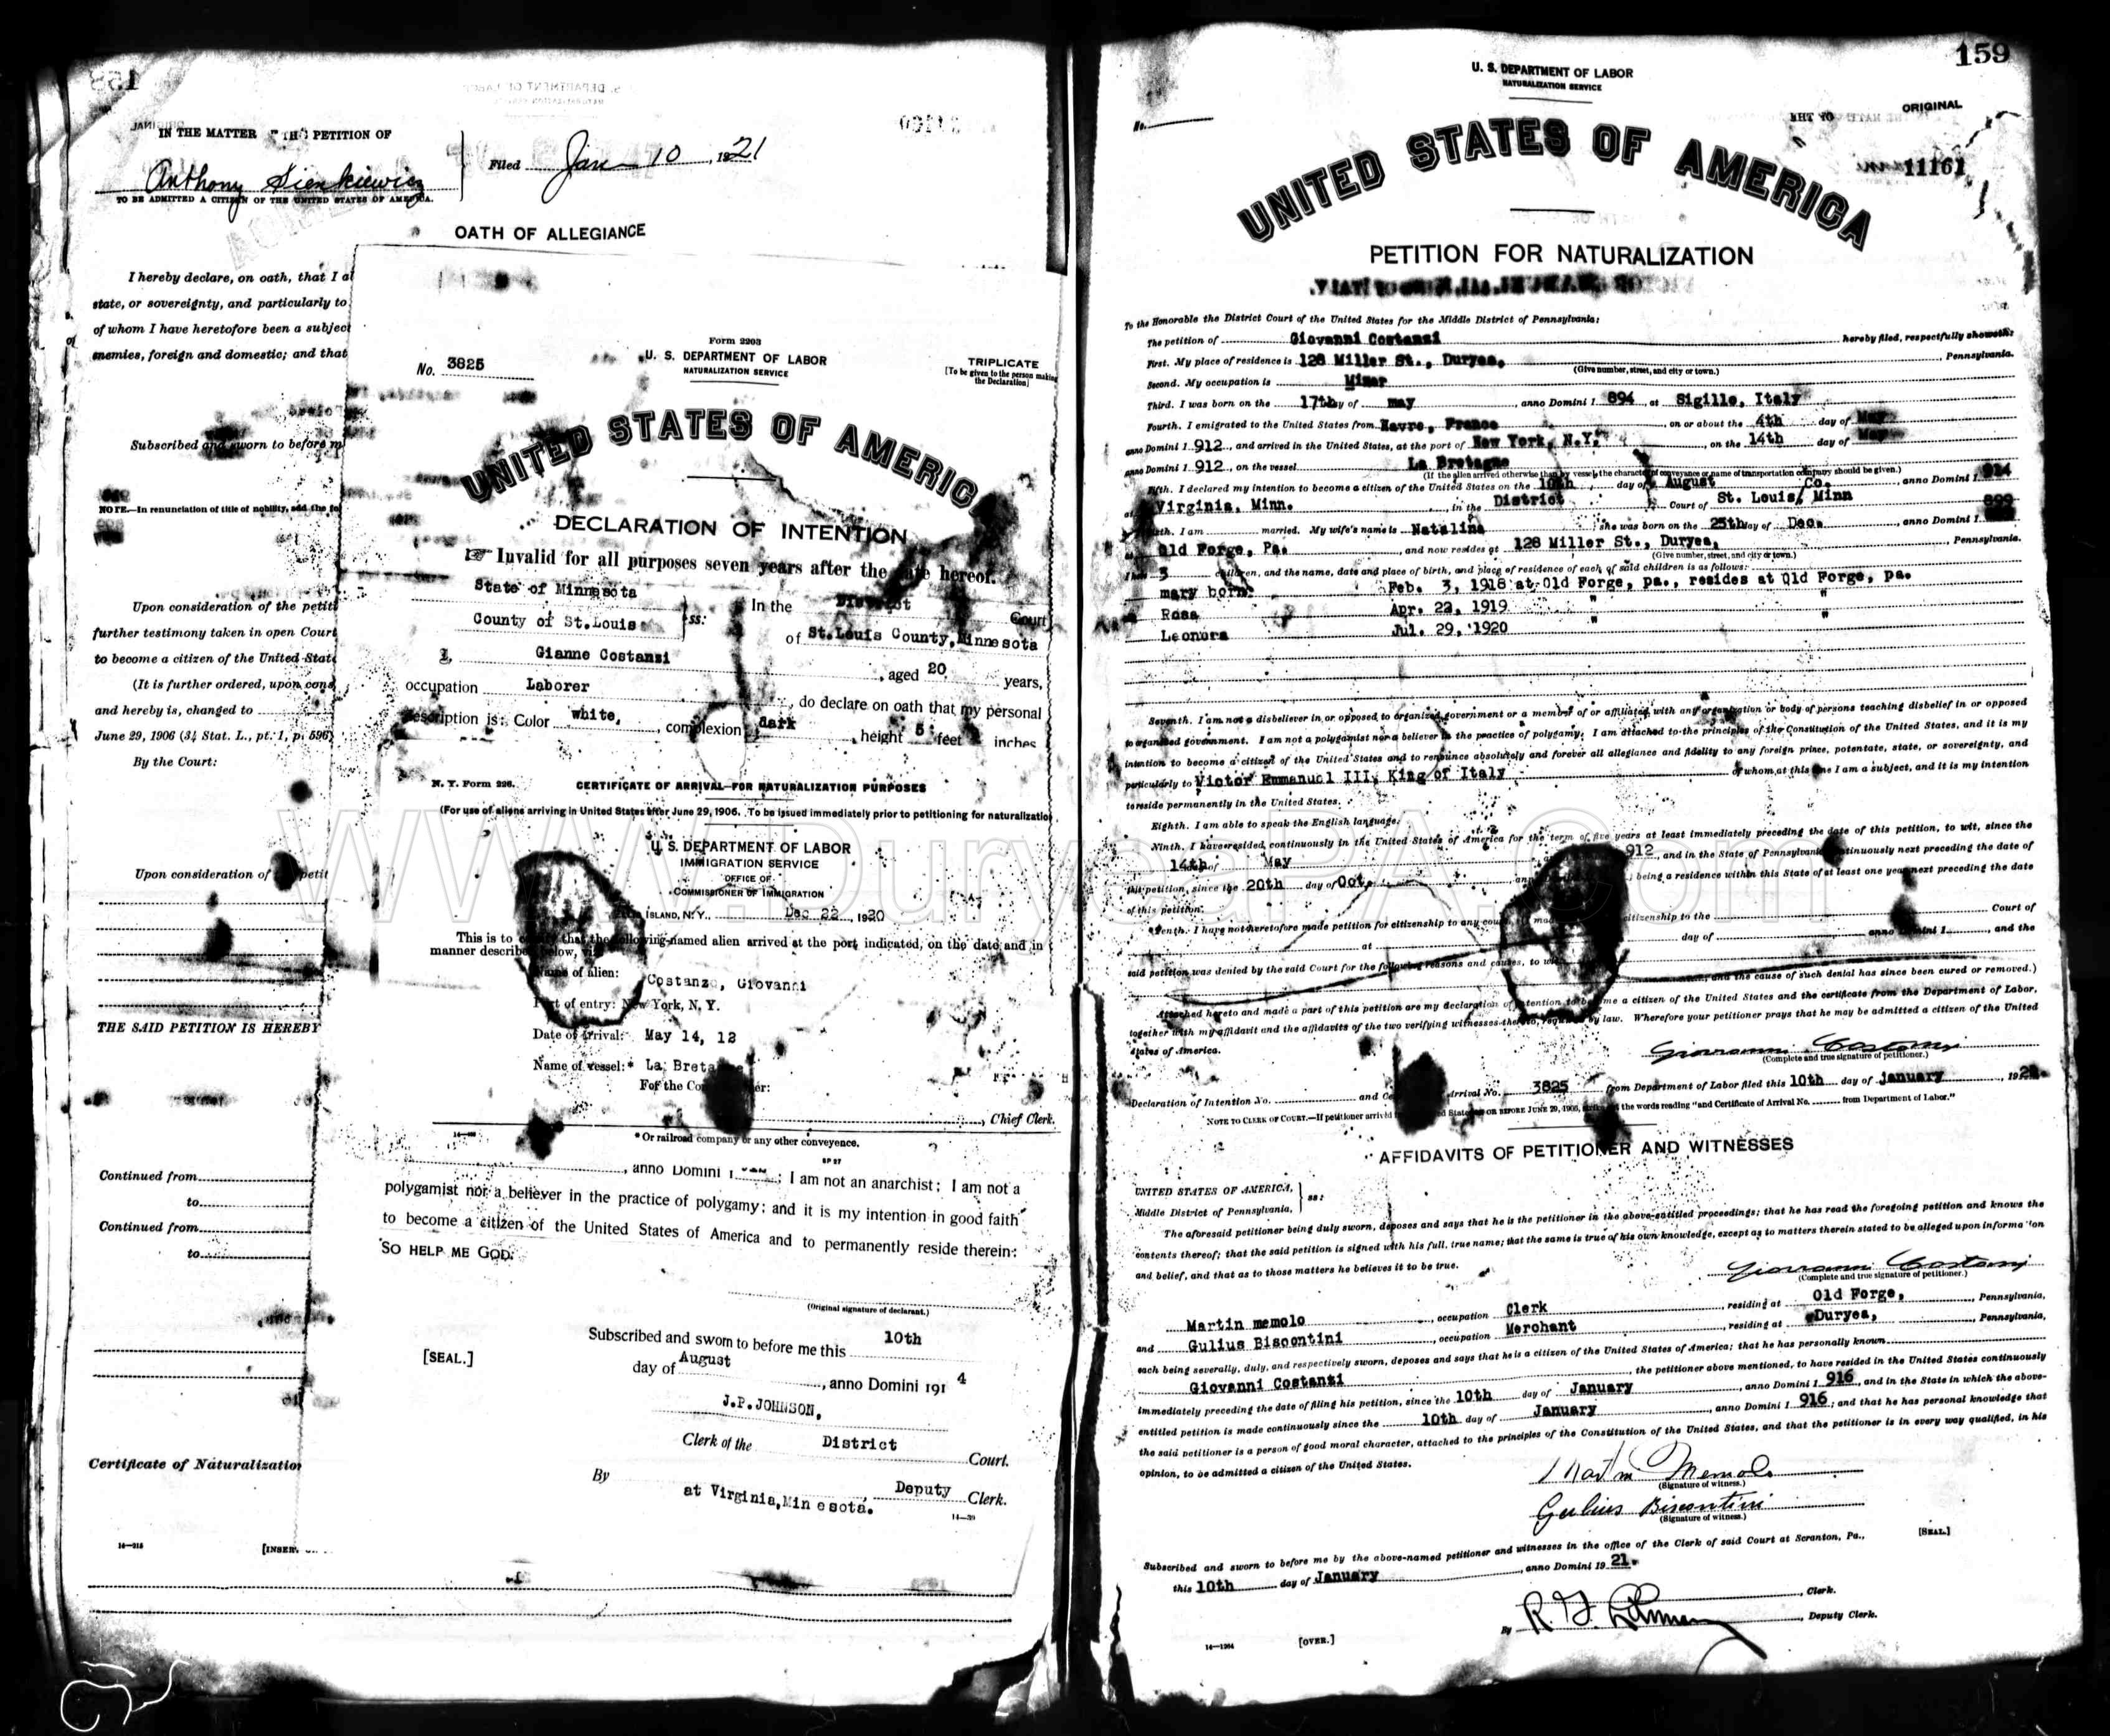 158
IN THE MATTER OF THE PETITION OF
Anthony Sienkiewicz
TO BE ADMITTED A CITIZEN OF THE UNITED STATES OF AMERICA.
Filed Jan 10, 1921
OATH OF ALLEGIANCE
I hereby declare, on oath, that I
state, or sovereignty, and particularly to
of whom I have heretofore been a subject
enemies, foreign and domestic; and that
Subscribed and sworn to before
NOTE.—In renunciation of title of nobility, add the
Upon consideration of the
further testimony taken in open Court
to become a citizen of the United
(It is further ordered, upon
and hereby is, changed to
June 29, 1906 (34 Stat. L., pt. 1, p. 596)
By the Court:
Upon consideration of
THE SAID PETITION IS HEREBY
Continued from
to
Continued from
to
Certificate of
14—215
Form 2203
No. 3825
U. S. DEPARTMENT OF LABOR
NATURALIZATION SERVICE
TRIPLICATE
[To be given to the person making
the Declaration]
UNITED STATES OF AMERIC
DECLARATION OF INTENTION
☞ Invalid for all purposes seven years after the date hereof.
State of Minnesota
County of St.Louis
ss:
In the District Court
of St.Louis County, Minnesota
I, Gianne Costansi, aged 20 years,
occupation Laborer, do declare on oath that my personal
description is: Color white, complexion dark, height 5 feet inches
N. Y. Form 226.
CERTIFICATE OF ARRIVAL—FOR NATURALIZATION PURPOSES
(For use of aliens arriving in United States after June 29, 1906. To be issued immediately prior to petitioning for
U. S. DEPARTMENT OF LABOR
IMMIGRATION SERVICE
OFFICE OF
COMMISSIONER OF IMMIGRATION
ISLAND, N. Y., Dec 22, 1920
This is to that the following-named alien arrived at the port indicated, on the date and in
manner described below,
Name of alien: Costanzo, Giovanni
Port of entry: New York, N, Y.
Date of Arrival: May 14, 12
Name of vessel:* La
For the
Chief Clerk.
*Or railroad company or any other conveyence.
, anno Domini 1; I am not an anarchist; I am not a
polygamist nor a believer in the practice of polygamy; and it is my intention in good faith
to become a citizen of the United States of America and to permanently reside therein:
SO HELP ME GOD.
(Original signature of declarant.)
[SEAL.]
Subscribed and sworn to before me this 10th
day of August, anno Domini 191 4
J.P.JOHNSON,
Clerk of the District Court.
By, Deputy Clerk.
at Virginia, Minesota.
14—39
159
U. S. DEPARTMENT OF LABOR
NATURALIZATION SERVICE
No.
ORIGINAL
11161
UNITED STATES OF AMERICA
PETITION FOR NATURALIZATION
To the Honorable the District Court of the United States for the Middle District of Pennsylvania:
The petition of Giovanni Costansi hereby filed, respectfully showeth:
First. My place of residence is 128 Miller St., Duryea, Pennsylvania.
(Give number, street, and city or town.)
Second. My occupation is Miner
Third. I was born on the 17th day of may, anno Domini 1 894, at Sigillo, Italy
Fourth. I emigrated to the United States from Havre, France, on or about the 4th day of May
anno Domini 1 912, and arrived in the United States, at the port of New York, N.Y., on the 14th day of May
anno Domini 1 912, on the vessel La Bretagne
(If the alien arrived otherwise than by vessel, the character of conveyance or name of transportation company should be given.)
Fifth. I declared my intention to become a citizen of the United States on the 10th day of August, anno Domini 1 914
at Virginia, Minn. in the District Court of St. Louis Co. Minn
Sixth. I am married. My wife's name is Natalina she was born on the 25th day of Dec., anno Domini 1 899
at Old Forge, Pa., and now resides at 128 Miller St., Duryea, Pennsylvania.
(Give number, street, and city or town.)
I have 3 children, and the name, date and place of birth, and place of residence of each of said children is as follows:
mary born Feb. 3, 1918 at Old Forge, pa., resides at Old Forge, pa.
Rosa Apr. 22, 1919 " "
Leonora Jul. 29, 1920 " "
Seventh. I am not a disbeliever in or opposed to organized government or a member of or affiliated with any organization or body of persons teaching disbelief in or opposed
to organized government. I am not a polygamist nor a believer in the practice of polygamy. I am attached to the principles of the Constitution of the United States, and it is my
intention to become a citizen of the United States and to renounce absolutely and forever all allegiance and fidelity to any foreign prince, potentate, state, or sovereignty, and
particularly to Victor Emmanuel III, King of Italy of whom at this time I am a subject, and it is my intention
to reside permanently in the United States.
Eighth. I am able to speak the English language.
Ninth. I have resided continuously in the United States of America for the term of five years at least immediately preceding the date of this petition, to wit, since the
14th of May 912, and in the State of Pennsylvania continuously next preceding the date of
this petition, since the 20th day of Oct. being a residence within this State of at least one year next preceding the date
of this petition.
Tenth. I have not heretofore made petition for citizenship to any citizenship to the Court of
at day of anno Domini 1, and the
said petition was denied by the said Court for the following reasons and causes, to wit and the cause of such denial has since been cured or removed.)
Attached hereto and made a part of this petition are my declaration of intention to become a citizen of the United States and the certificate from the Department of Labor,
together with my affidavit and the affidavits of the two verifying witnesses thereto, required by law. Wherefore your petitioner prays that he may be admitted a citizen of the United
States of America.
Giovanni Costanzi
(Complete and true signature of petitioner.)
Declaration of Intention No. and Arrival No. 3825 from Department of Labor filed this 10th day of january, 192
NOTE TO CLERK OF COURT.—If petitioner arrived ON OR BEFORE JUNE 29, 1906, the words reading "and Certificate of Arrival No. from Department of Labor."
AFFIDAVITS OF PETITIONER AND WITNESSES
UNITED STATES OF AMERICA,
Middle District of Pennsylvania,
ss:
The aforesaid petitioner being duly sworn, deposes and says that he is the petitioner in the above-entitled proceedings; that he has read the foregoing petition and knows the
contents thereof; that the said petition is signed with his full, true name; that the same is true of his own knowledge, except as to matters therein stated to be alleged upon information
and belief, and that as to those matters he believes it to be true.
Giovanni Costanzi
(Complete and true signature of petitioner.)
Martin memolo, occupation Clerk, residing at Old Forge, Pennsylvania,
and Gulius Biscontini, occupation Merchant, residing at Duryea, Pennsylvania,
each being severally, duly, and respectively sworn, deposes and says that he is a citizen of the United States of America; that he has personally known
Giovanni Costanzi, the petitioner above mentioned, to have resided in the United States continuously
immediately preceding the date of filing his petition, since the 10th day of January, anno Domini 1 916, and in the State in which the above-
entitled petition is made continuously since the 10th day of January, anno Domini 1 916; and that he has personal knowledge that
the said petitioner is a person of good moral character, attached to the principles of the Constitution of the United States, and that the petitioner is in every way qualified, in his
opinion, to be admitted a citizen of the United States.
Martin Memolo
(Signature of witness.)
Gulius Biscontini
(Signature of witness.)
Subscribed and sworn to before me by the above-named petitioner and witnesses in the office of the Clerk of said Court at Scranton, Pa.,
this 10th day of January, anno Domini 19 21.
[SEAL.]
, Clerk.
By, Deputy Clerk.
14—1204
[OVER.]
www.DuryeaPA.com